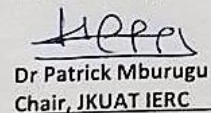 Dr Patrick Mburugu
Chair, JKUAT IERC